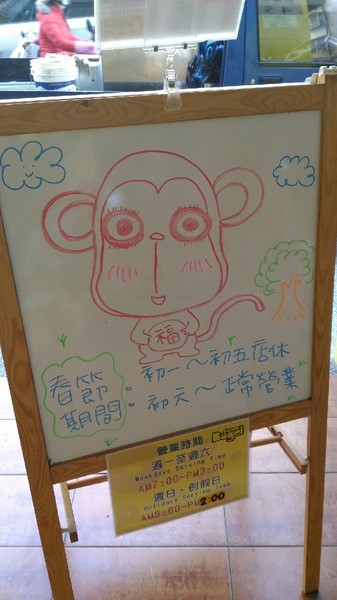 福
春節
期間：
初一～初五店休
初六～正常營業
營業時間
週一至週六
Weekdays Serving Time
AM7:00~PM2:00
週日、例假日
Holidays Serving Time
AM8:00~PM2:00